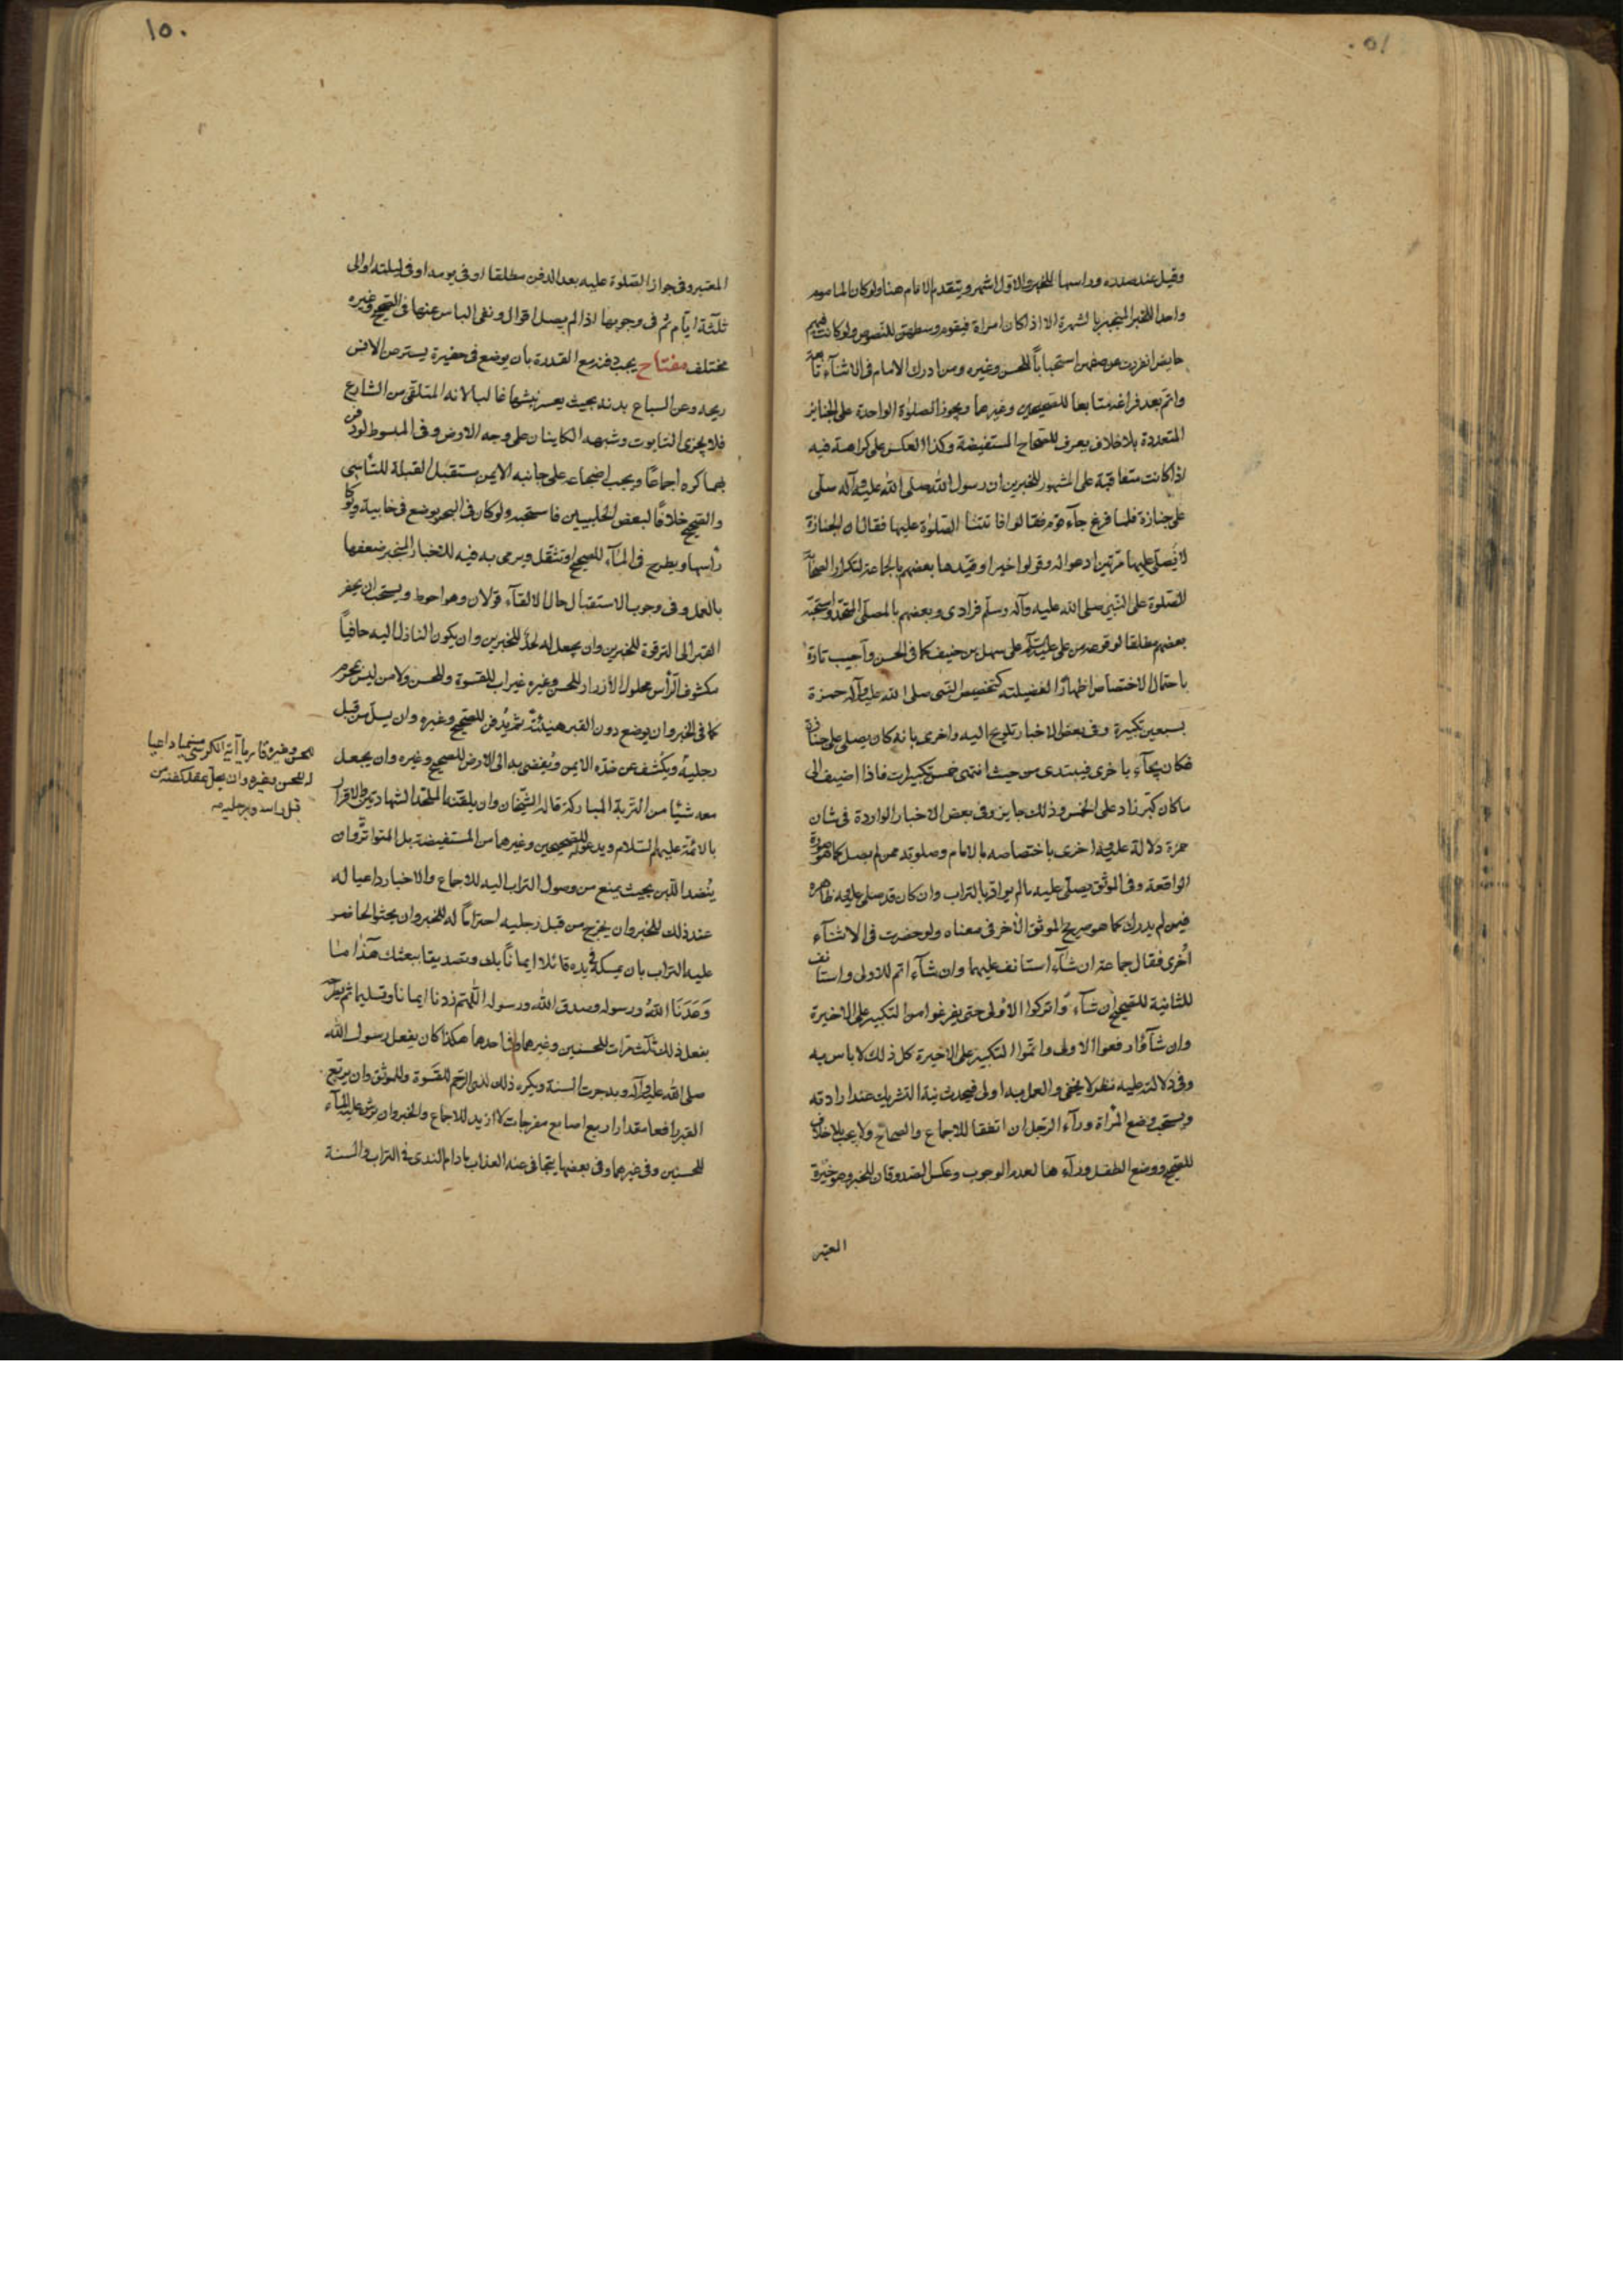 ٥١٠
وقيل عند صدره وراسها للخبر والاول اشهر ويتقدم الامام هنا ولو كان الماموم
واحدا للخبر المنجبر بالشهرة الا اذا كان امراة فيقوم وسطهن للنصوص ولو كانت فيهم
حايض انفردت عن صفهن استحبابا للحسن وغيره ومن ادرك الامام فى الاثنآء تابعه
واتم بعد فراغه متتابعا للصحيحين وغيرهما ويجوز الصلوة الواحدة على الجنايز
المتعددة بلا خلاف يعرف للصحاح المستفيضة وكذا العكس على كراهة فيه
اذا كانت متعاقبة على المشهور للخبرين ان رسول الله صلى الله عليه وآله صلى
على جنازة فلما فرغ جآء قوم فقالوا فاتتنا الصلوة عليها فقال ان الجنازة
لا يُصلّى عليها مرّتين ادعوا له وقولوا خيرا وقيدها بعضهم بالجماعة لتكرار الصحابة
الصلوة على النبى صلى الله عليه وآله وسلم فرادى وبعضهم بالمصلى المتحد واستحبّه
بعضهم مطلقا لوقوعه من على عليه السلام على سهل بن حنيف كما فى الحسن وأجيب تارة
باحتمال الاختصاص اظهارًا لفضيلته كتخصيص النبى صلى الله عليه وآله حمزة
بسبعين تكبيرة وفى بعض الاخبار تلويح اليه واخرى بانه كان يصلى على جنازة
فكان يجآء باخرى فيبتدى من حيث انتهى خمس تكبيرات فاذا اضيف الى
ما كان كبّر زاد على الخمس وذلك جايز وفى بعض الاخبار الواردة فى شان
حمزة دلالة عليه واخرى باختصاصه بالامام وصلوته ممن لم يصل كما هو مورد
الواقعة وفى الموثق يصلّى عليه مالم يوار بالتراب وان كان قد صلى عليه ظاهره
فيمن لم يدرك كما هو صريح الموثق الآخر فى معناه ولو حضرت فى الاثنآء
اُخرى فقال جماعة ان شآء استانف عليهما وان شآء اتم للاولى واستانف
للثانية للصحيح ان شآءوا تركوا الاُولى حتى يفرغوا من التكبير على الاخيرة
وان شآؤا رفعوا الاولى واتمّوا التكبير على الاخيرة كل ذلك لا باس به
وفى دلالته عليه نظر لا يخفى والعمل به اولى فيحدث نية التشريك عند ارادته
ويستحب وضع المرأة ورآء الرجل ان اتفقا للاجماع والصحاح ولا يجب بلا خلاف
للصحيح ووضع الطفل ورآءها لعدم الوجوب وعكس الصدوقان للخبر وهو خيرة
المعتبر
١٥٠
المعتبر وفى جواز الصلوة عليه بعد الدفن مطلقا او فى يومه او فى ليلته او الى
ثلثة ايّام ثم فى وجوبها اذا لم يصل اقوال ونفى الباس عنها فى الصحيح وغيره
مختلف مفتاح يجب دفنه مع القدرة بان يوضع فى حفيرة يستر عن الانس
ريحه وعن السباع بدنه بحيث يعسر نبشها غالبا لانه المتلقى من الشارع
فلا يجزى التابوت وشبهه الكاينان على وجه الارض وفى المبسوط لو دفن
بهما كره اجماعًا ويجب اضجاعه على جانبه الايمن مستقبل القبلة للتأسى
والصحيح خلافًا لبعض الحلبيين فاستحبه ولو كان فى البحر يوضع فى خابية ويوكا
رأسها ويطرح فى المآء للصحيح او تثقّل ويرمى به فيه للاخبار المنجبر ضعفها
بالعمل وفى وجوب الاستقبال حال الالقآء قولان وهو احوط ويستحب ان يحفر
القبر الى الترقوة للخبرين وان يجعل له لحدٌ للخبرين وان يكون النازل اليه حافياً
مكشوف الرأس محلول الأزرار للحسن وغيره غير اب للقسوة وللحسن ولا من ليس بمحرم
كما فى الخبر وان يوضع دون القبر هنيئة ثم يُدفن للصحيح وغيره وان يسل من قبل
رجليه ويكشف عن خده الايمن ويُفضى به الى الارض للصحيح وغيره وان يجعل
معه شيئا من التربة المباركة قاله الشيخان وان يلقنه الملحد الشهادتين والاقرار
بالائمة عليهم السلام ويدعو له للصحيحين وغيرهما من المستفيضة بل المتواتر وان
يُنضد اللّبن بحيث يمنع من وصول التراب اليه للاجماع والاخبار داعيا له
عند ذلك للخبر وان يخرج من قبل رجليه احترامًا له للخبر وان يحثو الحاضر
عليه التراب بان يمسكه فى يده قائلا ايمانًا بك وتصديقا ببعثك هَذا ما
وَعَدَنَا اللهُ ورسوله وصدق الله ورسوله اللّهم زدنا ايمانا وتسليما ثم يطرحه
يفعل ذلك ثلث مرات للحسنين وغيرهما وفى احدهما هكذا كان يفعل رسول الله
صلى الله عليه وآله وبه جرت السنة ويكره ذلك لذى الرحم للقسوة وللموثق وان يربّع
القبر رافعا مقدار اربع اصابع مفرجات لا ازيد للاجماع والخبر وان يرش عليه المآء
للحسنين وفى غيرهما وفى بعضها يتجافى عنه العذاب ما دام الندى فى التراب والسنة
للحسن وغيره قاريا آية الكرسى فيهما داعيا
له للحسن وغيره وان يحل عقد كفنه من
قبل راسه ورجليه